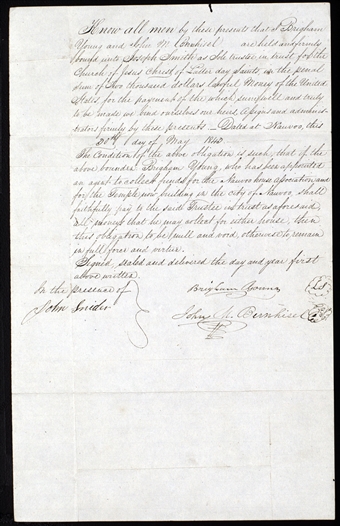 Know all men by these presents that I Brigham
Young and John M. Bernhisel are held and firmly
bound unto Joseph Smith as sole trustee in trust for the
Church of Jesus Christ of Latter day Saints, in the penal
sum of two thousand dollars Lawful Money of the United
States for the payment of the which sum well and truly
to be made we bind ourselves our heirs Assigns and admini-
strators firmly by these presents — Dated at Nauvoo, this
30th day of May 1843.
The Condition of the above obligation is such, that if the
above bounden Brigham Young, who has been appointed
an agent to collect funds for the Nauvoo house Association, and
for the Temple now building in the city of Nauvoo, shall
faithfully pay to the said Trustee in trust as aforesaid
all moneys that he may collect for either house, then
this obligation to be null and void, otherwise to remain
in full force and virtue.
Signed, sealed and delivered the day and year first
above written
In the presence of
John Snider
Brigham Young LS
John M. Bernhisel